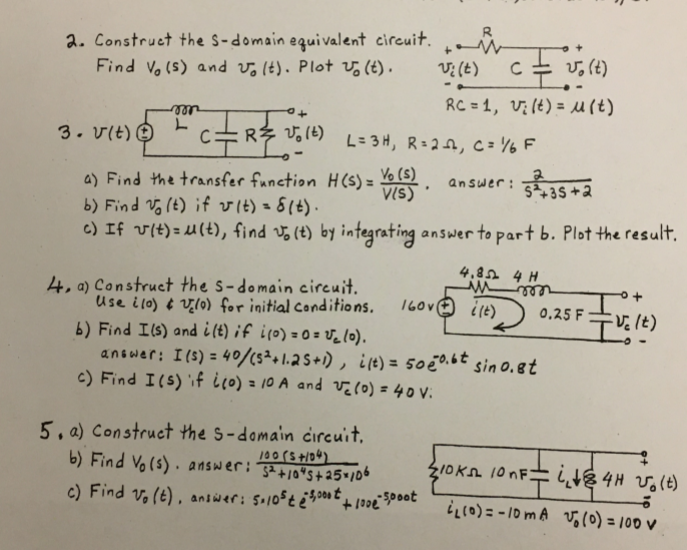 2. Construct the s-domain equivalent circuit.
Find Vo(s) and vo(t). Plot vo(t).
R
+ +
vi(t) C vo(t)
- -
RC = 1, vi(t) = u(t)
3. v(t) + L C R vo(t) + -
L = 3H, R = 2Ω, C = 1/6 F
a) Find the transfer function H(s) = Vo(s)/V(s). answer: 2/(s²+3s+2)
b) Find vo(t) if v(t) = δ(t).
c) If v(t) = u(t), find vo(t) by integrating answer to part b. Plot the result.
4. a) Construct the s-domain circuit.
Use i(0) & vc(0) for initial conditions.
4.8Ω 4 H
160v + i(t) 0.25 F + vc(t) -
b) Find I(s) and i(t) if i(0) = 0 = vc(0).
answer: I(s) = 40/(s²+1.2s+1), i(t) = 50e^-0.6t sin 0.8t
c) Find I(s) if i(0) = 10 A and vc(0) = 40 V.
5. a) Construct the s-domain circuit.
b) Find Vo(s). answer: 100(s+10⁴)/(s²+10⁴s+25×10⁶)
c) Find vo(t), answer: 5×10⁵t e^-5,000t + 100e^-5,000t
10KΩ 10nF iL 4H vo(t) + -
iL(0) = -10 mA vo(0) = 100 V